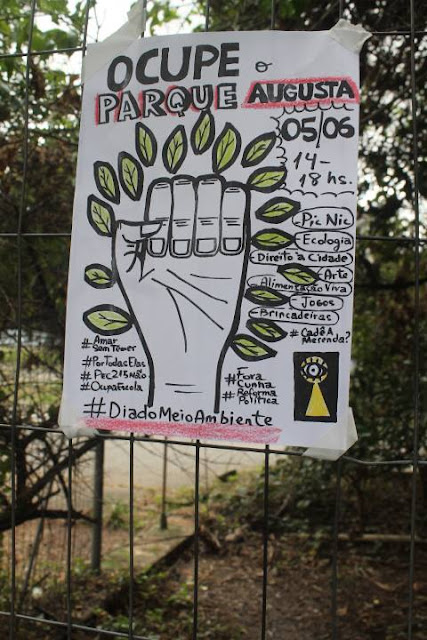 OCUPE o
PARQUE AUGUSTA
05/06
14-
18 hs.
Pic Nic
Ecologia
Direito à Cidade
Arte
Alimentação Viva
Jogos
Brincadeiras
#Cadê A
Merenda?
#Amar
Sem Temer
#PorTodasElas
#PEC215Não
#OcupaEscola
#Fora
Cunha
#Reforma
Política
#DiadoMeioAmbiente